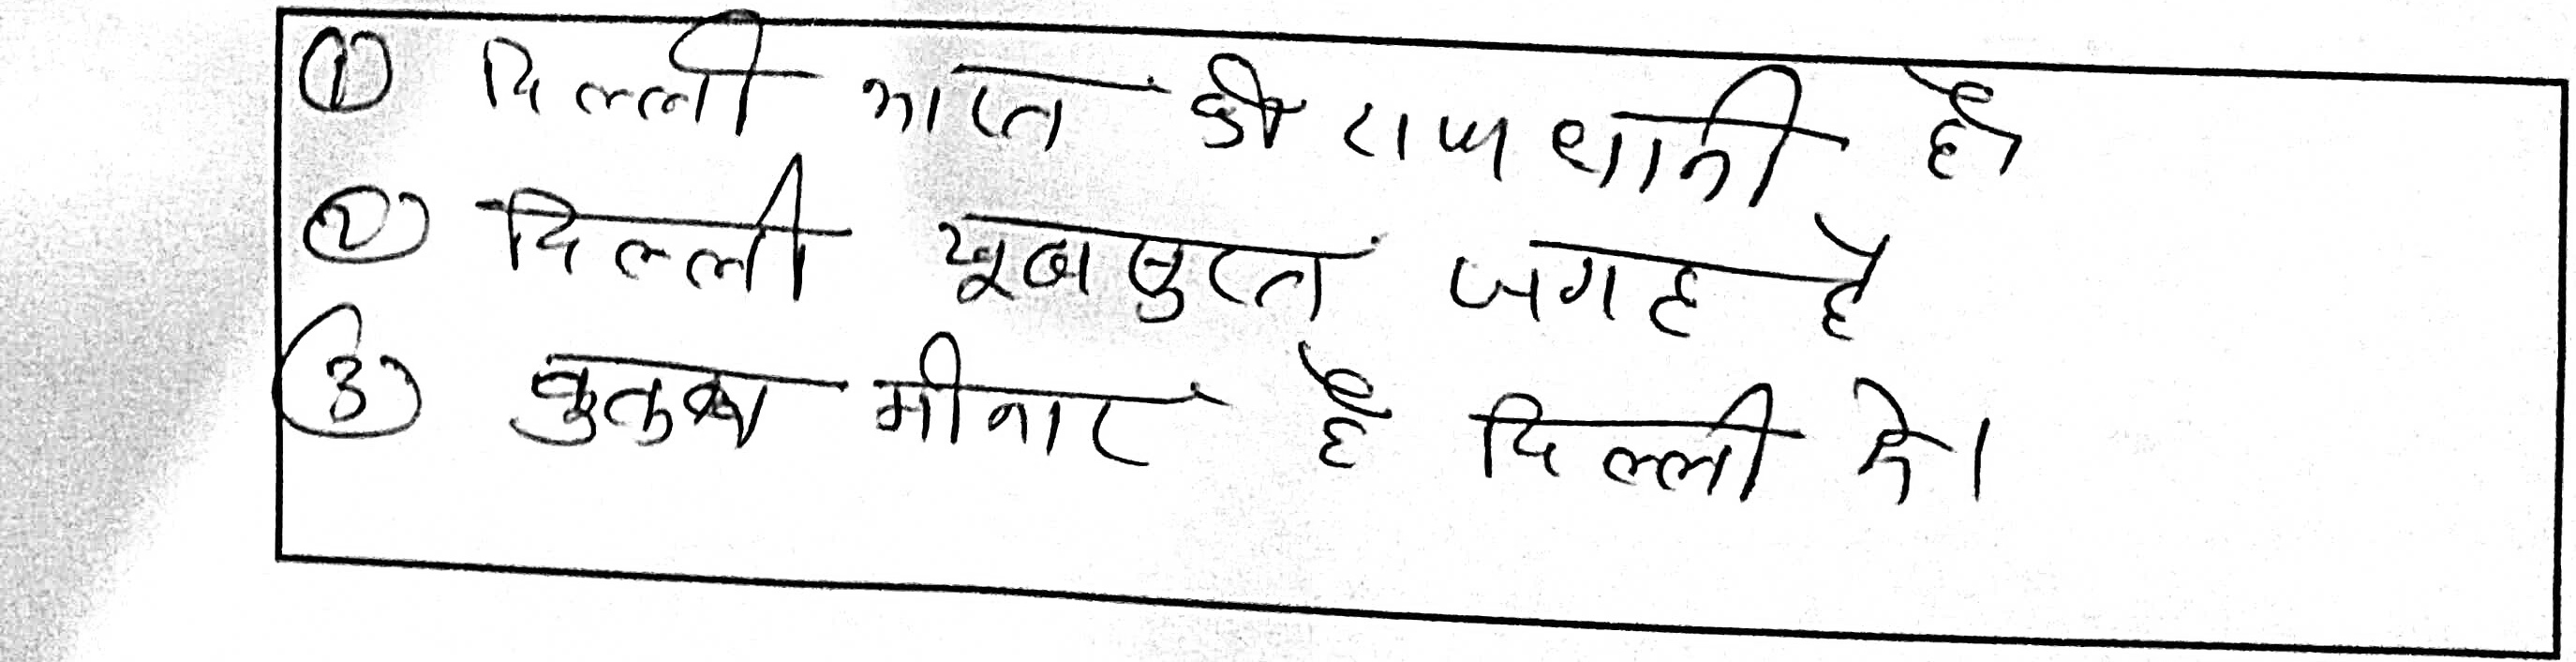 ① दिल्ली भारत की राजधानी है
② दिल्ली खूबसुरत जगह है
③ कुतुब मीनार है दिल्ली मे।